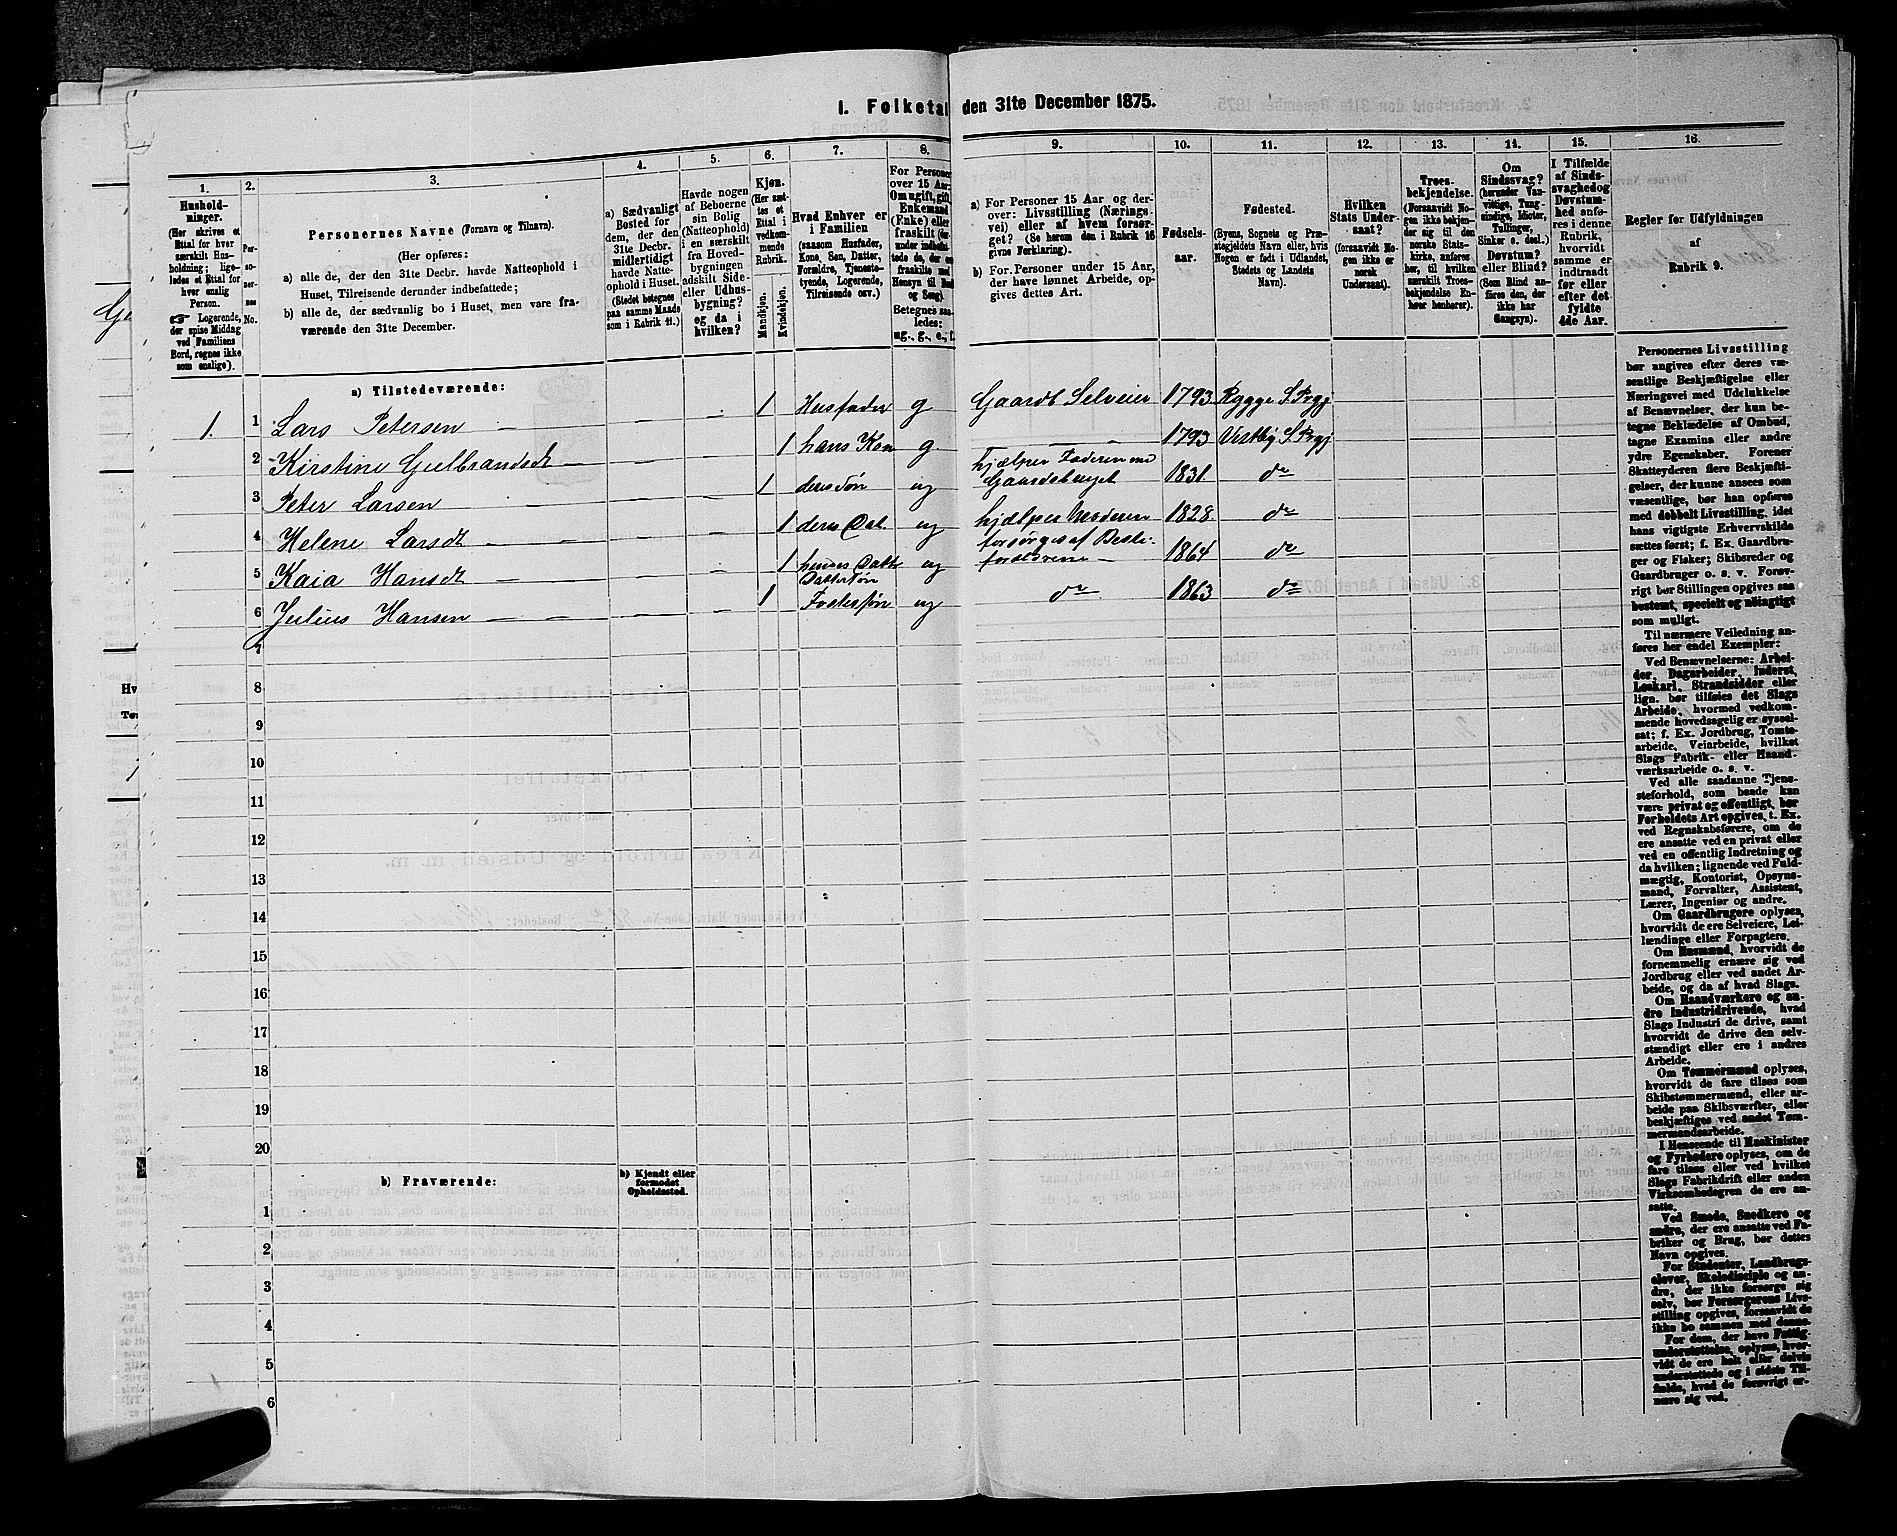 1. Folketal den 31te December 1875.
1. 2. 3. 4. 5. 6. 7. 8. 9. 10. 11. 12. 13. 14. 15. 16.
Hushold-
ninger.
(Her skrives et
Ettal for hver
særskilt Hus-
holdning; lige-
ledes et Ettal for
hver enslig
Person.
Logerende,
der spise Middag
ved Familiens
Bord, regnes ikke
som enslige).
Per-
so-
ner-
nes
No.
Personernes Navne (Fornavn og Tilnavn).
(Her opføres:
a) alle de, der den 31te Decbr. havde Natteophold i
Huset, Tilreisende derunder indbefattede;
b) alle de, der sædvanlig bo i Huset, men vare fra-
værende den 31te December.
a) Sædvanligt
Bosted for
dem, der den
31te Decbr.
midlertidigt
havde Natte-
ophold i Huset.
(Stedet betegnes
paa samme Maade
som i Rubrik 11.)
Havde nogen
af Beboerne
sin Bolig
(Natteophold)
i en særskilt
fra Hoved-
bygningen
adskilt Side-
eller Udhus-
bygning?
og da i
hvilken?
Kjøn.
(Her sæt-
tes et
Ettal i
vedkom-
mende
Rubrik.
Mandkjøn.
Kvindekjøn.
Hvad Enhver er
i Familien
(saasom Husfader,
Kone, Søn, Datter,
Forældre, Tjeneste-
tyende, Logerende,
Tilreisende osv.)
For Personer
over 15 Aar:
Om ugift, gift,
Enkemand
(Enke) eller
fraskilt
Betegnes saa-
ledes:
ug., g., e., f.
a) For Personer 15 Aar og der-
over: Livsstilling (Nærings-
vei) eller af hvem forsør-
get? (Se herom den i Rubrik 16
givne Forklaring).
b) For Personer under 15 Aar,
der have lønnet Arbeide, op-
gives dettes Art.
Fødsels-
aar.
Fødested.
(Byens, Sognets og Præ-
stegjeldets Navn eller, hvis
Nogen er født i Udlandet,
Stedets og Landets
Navn).
Hvilken
Stats Under-
saat?
(forsaavidt No-
gen ikke er
norsk
Undersaat).
Troes-
bekjendelse.
(Forsaavidt No-
gen ikke bekjen-
der sig til den
norske Stats-
kirke, anføres
her, til hvilken
særskilt Troes-
bekjendelse En-
hver henhører).
Om
Sindssvag?
(herunder Van-
vittige, Tung-
sindige, Idioter,
Tullinger,
Sinker o. desl.)
Døvstum?
eller Blind?
(Som Blind an-
føres den, der
ikke har
Gangsyn).
I Tilfælde
af Sinds-
svaghed og
Døvstum-
hed anfø-
res i denne
Rubrik,
hvorvidt
samme er
indtraadt
før eller
efter det
fyldte
4de Aar.
Regler før Udfyldningen
af
Rubrik 9.
a) Tilstedeværende:
1. 1 Lars Petersen 1 Husfader g Gaardb. Selveier 1793 Rygge S. Prgj
2 Kirstine Gulbrandsdt 1 hans Kone g 1793 Vestby S. Prgj
3 Peter Larsen 1 deres Søn ug hjælper Faderen med
Gaardsbruget 1831 do
4 Helene Larsdt 1 deres Dat. ug hjælper Moderen 1828 do
5 Kaia Hansdt 1 hennes Datter ug forsørges af Beste-
forældrene 1864 do
6 Julius Hansen 1 Dattersøn
Fostersøn ug do 1863 do
7
8
9
10
11
12
13
14
15
16
17
18
19
20
b) Fraværende:
b) Kjendt eller
formodet
Opholdssted.
1
2
3
4
5
6
Personernes Livsstilling
bør angives efter deres væ-
sentlige Beskjæftigelse eller
Næringsvei med Udelukkelse
af Benævnelser, der kun be-
tegne Beklædelse af Ombud,
tagne Examina eller andre
ydre Egenskaber. Forener
Skatteyderen flere Beskjæfti-
gelser, der kunne ansees som
væsentlige, bør han opføres
med dobbelt Livsstilling, idet
hans vigtigste Erhvervskilde
sættes først; f. Ex. Gaardbru-
ger og Fisker; Skibsreder og
Gaardbruger o. s. v. Forøv-
rigt bør Stillingen opgives saa
bestemt, specielt og nøiagtigt
som muligt.
Til nærmere Veiledning an-
føres her endel Exempler:
Ved Benævnelserne: Arbei-
der, Dagarbeider, Inderst,
Løskarl, Strandsidder eller
lign. bør tilføies det Slags
Arbeide, hvormed vedkom-
mende hovedsagelig er syssel-
sat; f. Ex. Jordbrug, Tomte-
arbeide, Veiarbeide, hvilket
Slags Fabrik- eller Haand-
værksarbeide o. s. v.
Ved alle saadanne Tjene-
steforhold, som baade kan
være privat og offentligt, bør
Forholdets Art opgives, t. Ex.
ved Regnskabsførere, om de
ere ansatte ved en privat eller
ved en offentlig Indretning og
da hvilken; lignende ved Fuld-
mægtig, Kontorist, Opsyns-
mand, Forvalter, Assistent,
Lærer, Ingeniør og andre.
Om Gaardbrugere oplyses,
hvorvidt de ere Selveiere, Lei-
lændinge eller Forpagtere.
Om Husmænd, hvorvidt de
fornemmelig ernære sig ved
Jordbrug eller ved andet Ar-
beide, og da af hvad Slags.
Om Haandværkere og an-
dre Industridrivende, hvad
Slags Industri de drive, samt
hvorvidt de drive den selv-
stændigt eller ere i andres
Arbeide.
Om Tømmermænd oplyses,
hvorvidt de fare tilsøs som
Skibstømmermænd, eller ar-
beide paa Skibsværfter, eller
beskjæftiges ved andet Tøm-
mermandsarbeide.
I Henseende til Maskinister
og Fyrbødere oplyses, om de
fare tilsøs eller ved hvilket
Slags Fabrikdrift eller anden
Virksomhed de ere an-
satte.
Ved Smede, Snedkere og
andre, der ere ansatte ved Fa-
briker og Brug, bør dettes
Navn opgives.
For Studenter, Landbrugs-
elever, Skoledisciple og an-
dre, der ikke forsørge sig
selv, bør Forsørgerens Livs-
stilling opgives, forsaavidt de
ikke bo sammen med denne.
For dem, der have Fattig-
understøttelse, oplyses, hvor-
vidt de ere helt eller delvis
understøttede og i sidste Til-
fælde, hvad de forøvrigt er-
nære sig ved.